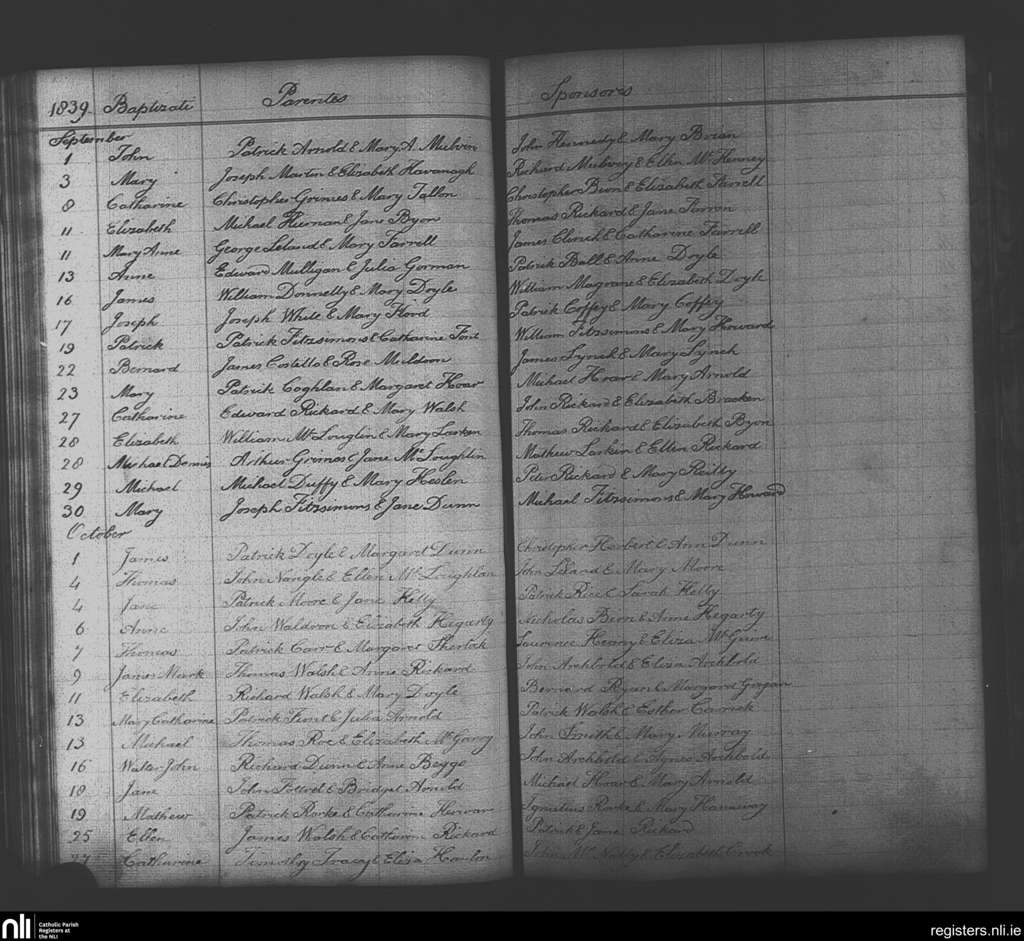 1839 Baptizati Parentes Sponsors
September
1 John Patrick Arnold & Mary A. Mulvin John Kennedy & Mary Brian
3 Mary Joseph Martin & Elizabeth Kavanagh Richard Mulvey & Ellen McKenney
8 Catharine Christopher Grimes & Mary Tallon Christopher Birn & Elizabeth Farrell
11 Elizabeth Michael Kiernan & Jane Byon Thomas Rickard & Jane
11 Mary Anne George Leland & Mary Farrell James Clinch & Catharine Farrell
13 Anne Edward Mulligan & Julia Gorman Patrick Ball & Anne Doyle
16 James William Donnelly & Mary Doyle William Magrane & Elizabeth Doyle
17 Joseph Joseph White & Mary Patrick Coffey & Mary Coffey
19 Patrick Patrick Fitzsimons & Catharine Font William Fitzsimons & Mary Howard
22 Bernard James Costello & Rose Muldoon James Lynch & Mary Lynch
23 Mary Patrick Coghlan & Margaret Hoar Michael Hoar & Mary Arnold
27 Catharine Edward Rickard & Mary Walsh John Rickard & Elizabeth Bracken
28 Elizabeth William McLouglin & Mary Larken Thomas Rickard & Elizabeth Byon
28 Michael Dennis Arthur Grimes & Jane McLoughlin Mathew Larkin & Ellen Rickard
29 Michael Michael Duffy & Mary Heslen Peter Rickard & Mary Reilly
30 Mary Joseph Fitzsimons & Jane Dunn Michael Fitzsimons & Mary Howard
October
1 James Patrick Doyle & Margaret Dunn Christopher Herbert & Ann Dunn
4 Thomas John Nangle & Ellen McLoughlan John Leland & Mary Moore
4 Jane Patrick Moore & Jane Kelly Patrick Rice & Sarah Kelly
6 Anne John Waldron & Elizabeth Hegarty Nicholas Birn & Anne Hegarty
7 Thomas Patrick Carr & Margaret Sherlock Laurence Heany & Eliza
9 James Mark Thomas Walsh & Anne Rickard John Archbold & Eliza Archbold
11 Elizabeth Richard Walsh & Mary Doyle Bernard Ryan & Margaret Gorgan
13 Mary Catharine Patrick & Julia Arnold Patrick Walsh & Esther Carrick
13 Michael Thomas Roe & Elizabeth McGarry John Smith & Mary Murray
16 Walter John Richard Dunn & Anne Begge John Archbold & Agnes Archbold
18 Jane John Fottrel & Bridget Arnold Michael Hoar & Mary Arnold
19 Mathew Patrick Rorke & Catharine Ignatius Rorke & Mary
25 Ellen James Walsh & Catharine Rickard Patrick & Jane Rickard
27 Catharine Timothy Tracey & Eliza Hanlon John McNally & Elizabeth
nli Catholic Parish Registers at the NLI
registers.nli.ie